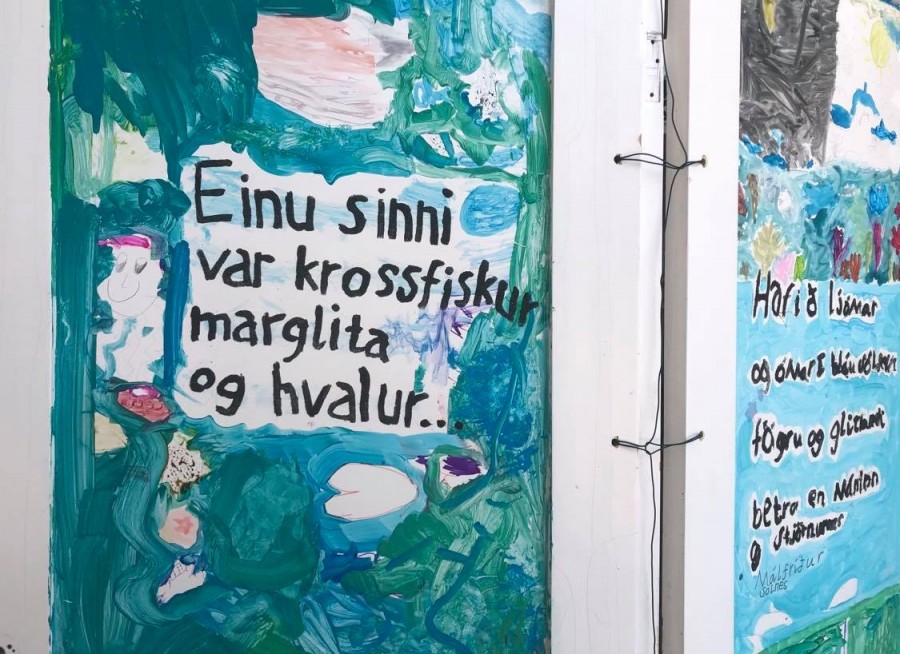 Einu sinni
var krossfiskur
marglita
og hvalur...
Hafið ljómar
og
fögru og glitrandi
betra en
g stjörnurnar
Málfríður
Sólnes